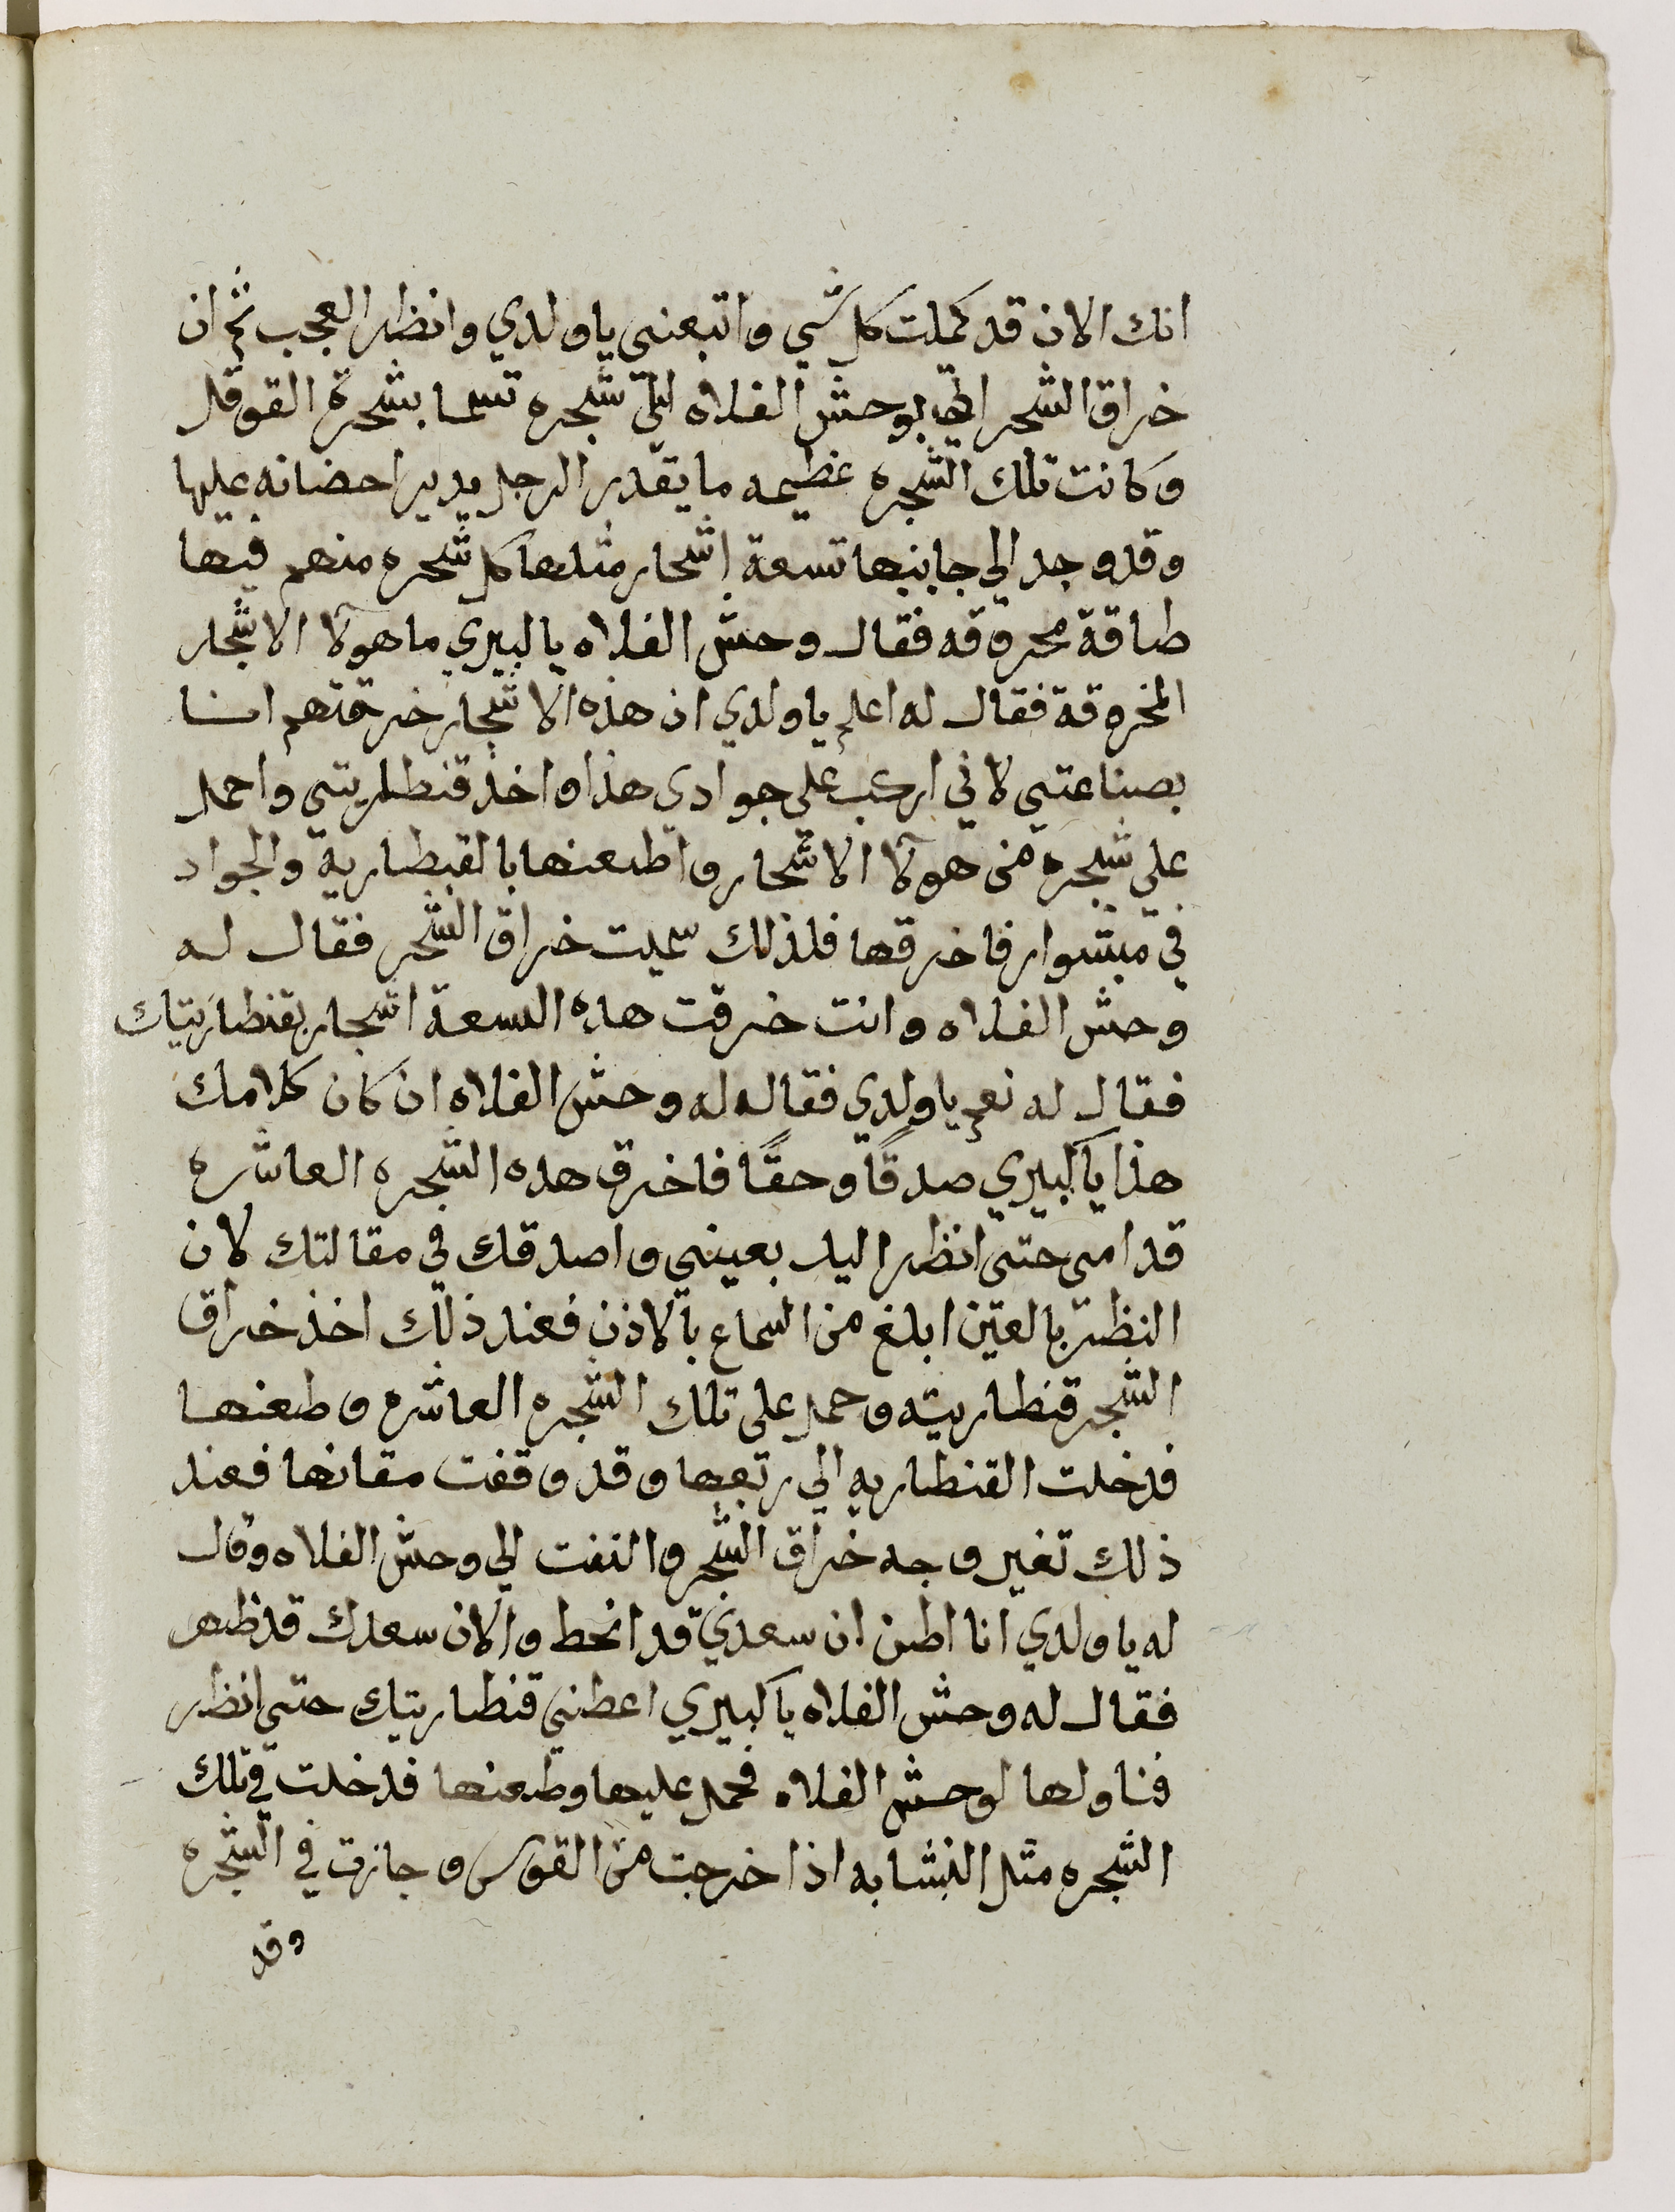 انك الان قد كملت كل شي واتبعني يا ولدي وانظر العجب ثم ان
خراق الشجر اتي بوحش الفلاه الي شجره تسما بشجرة القوقل
وكانت تلك الشجره عظيمه ما يقدر الرجل يدير احضانه عليها
وقد وجد الي جانبها تسعة اشجار مثلها كل شجره منهم فيها
طاقة مخروقه فقال وحش الفلاه يا كبيري ما هولآ الاشجار
المخروقة فقال له اعلم يا ولدي ان هذه الاشجار خرقتهم انا
بصناعتي لاني اركب علي جوادي هذا واخذ قنطاريتي واحمل
علي شجره من هولآ الاشجار واطعنها بالقنطارية والجواد
في مشوار فاخرقها فلذلك سميت خراق الشجر فقال له
وحش الفلاه وانت خرقت هذه التسعة اشجار بقنطاريتك
فقال له نعم يا ولدي فقال له وحش الفلاه ان كان كلامك
هذا يا كبيري صدقًا وحقًا فاخرق هده الشجره العاشره
قدامي حتي انظر اليه بعيني واصدقك في مقالتك لان
النظر بالعين ابلغ من السماع بالاذن فعند ذلك اخذ خراق
الشجر قنطاريته وحمل على تلك الشجره العاشره وطعنها
فدخلت القنطاريه الي ربعها وقد وقفت مقانها فعند
ذلك تغير وجه خراق الشجر والتفت الي وحش الفلاه وقال
له يا ولدي انا اظن ان سعدي قد انحط والان سعدك قد ظهر
فقال له وحش الفلاه يا كبيري اعطني قنطاريتك حتي انظر
فناولها لوحش الفلاه فحمل عليها وطعنها فدخلت في تلك
الشجره متل النشابه اذا خرجت من القوس وجازت في الشجره
وقد